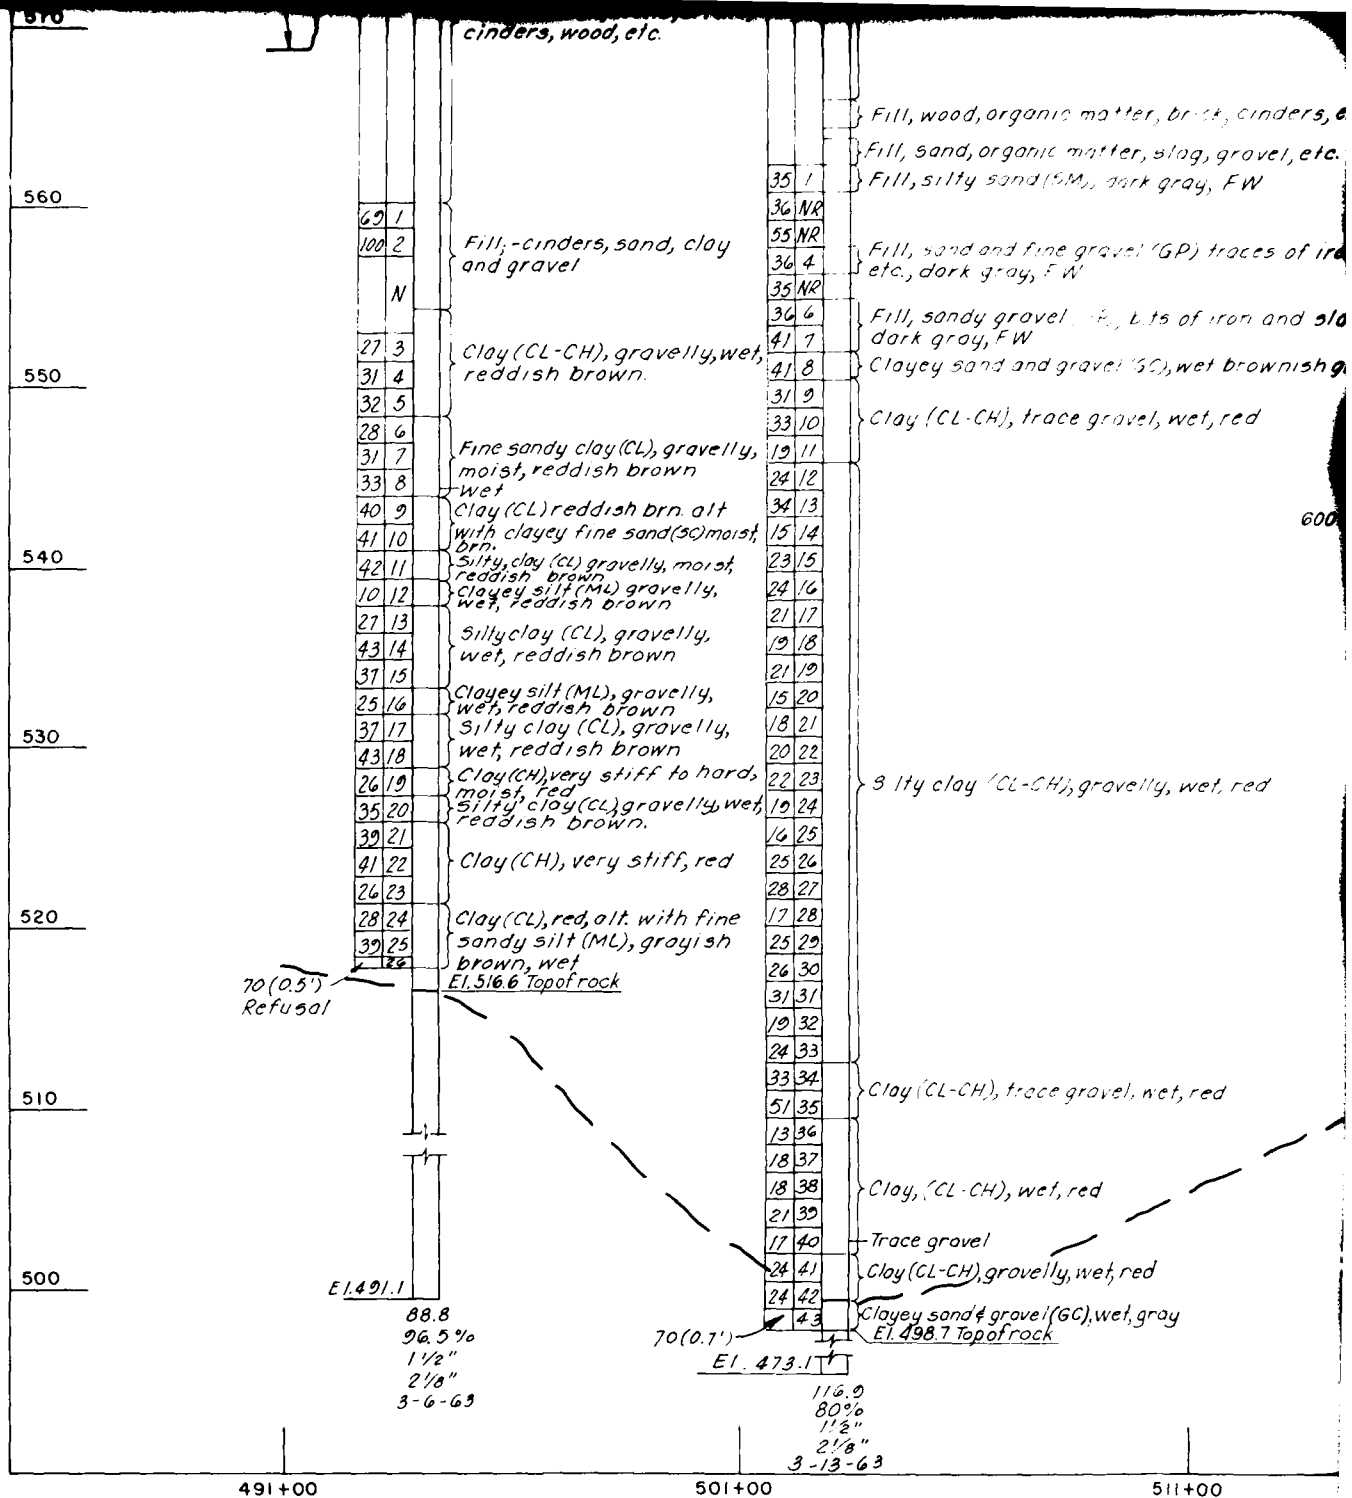 570
560
550
540
530
520
510
500
cinders, wood, etc.
69 1
100 2
N
27 3
31 4
32 5
28 6
31 7
33 8
40 9
41 10
42 11
10 12
27 13
43 14
37 15
25 16
37 17
43 18
26 19
35 20
39 21
41 22
26 23
28 24
39 25
26
Fill,-cinders, sand, clay
and gravel
Clay (CL-CH), gravelly, wet,
reddish brown.
Fine sandy clay (CL), gravelly,
moist, reddish brown
wet
Clay (CL) reddish brn. alt
with clayey fine sand (SC) moist,
brn.
Silty, clay (CL) gravelly, moist,
reddish brown
Clayey silt (ML) gravelly,
wet, reddish brown
Silty clay (CL), gravelly,
wet, reddish brown
Clayey silt (ML), gravelly,
wet, reddish brown
Silty clay (CL), gravelly,
wet, reddish brown
Clay (CH), very stiff to hard,
moist, red
Silty clay (CL) gravelly, wet,
reddish brown.
Clay (CH), very stiff, red
Clay (CL), red, alt. with fine
sandy silt (ML), grayish
brown, wet
El. 516.6 Top of rock
70 (0.5')
Refusal
El. 491.1
88.8
96.5%
1 1/2"
2 1/8"
3-6-63
35 1
36 NR
55 NR
36 4
35 NR
36 6
41 7
41 8
31 9
33 10
19 11
24 12
34 13
15 14
23 15
24 16
21 17
19 18
21 19
15 20
18 21
20 22
22 23
19 24
16 25
25 26
28 27
17 28
25 29
26 30
31 31
19 32
24 33
33 34
51 35
13 36
18 37
18 38
21 39
17 40
24 41
24 42
43
Fill, wood, organic matter, brick, cinders,
Fill, sand, organic matter, slag, gravel, etc.
Fill, silty sand (SM), dark gray, FW
Fill, sand and fine gravel (GP) traces of
etc., dark gray, FW
Fill, sandy gravel bits of iron and
dark gray, FW
Clayey sand and gravel (GC), wet brownish
Clay (CL-CH), trace gravel, wet, red
600
Silty clay (CL-CH), gravelly, wet, red
Clay (CL-CH), trace gravel, wet, red
Clay, (CL-CH), wet, red
Trace gravel
Clay (CL-CH), gravelly, wet, red
Clayey sand & gravel (GC), wet, gray
El. 498.7 Top of rock
70 (0.7')
El. 473.1
116.9
80%
1 1/2"
2 1/8"
3-13-63
491+00
501+00
511+00